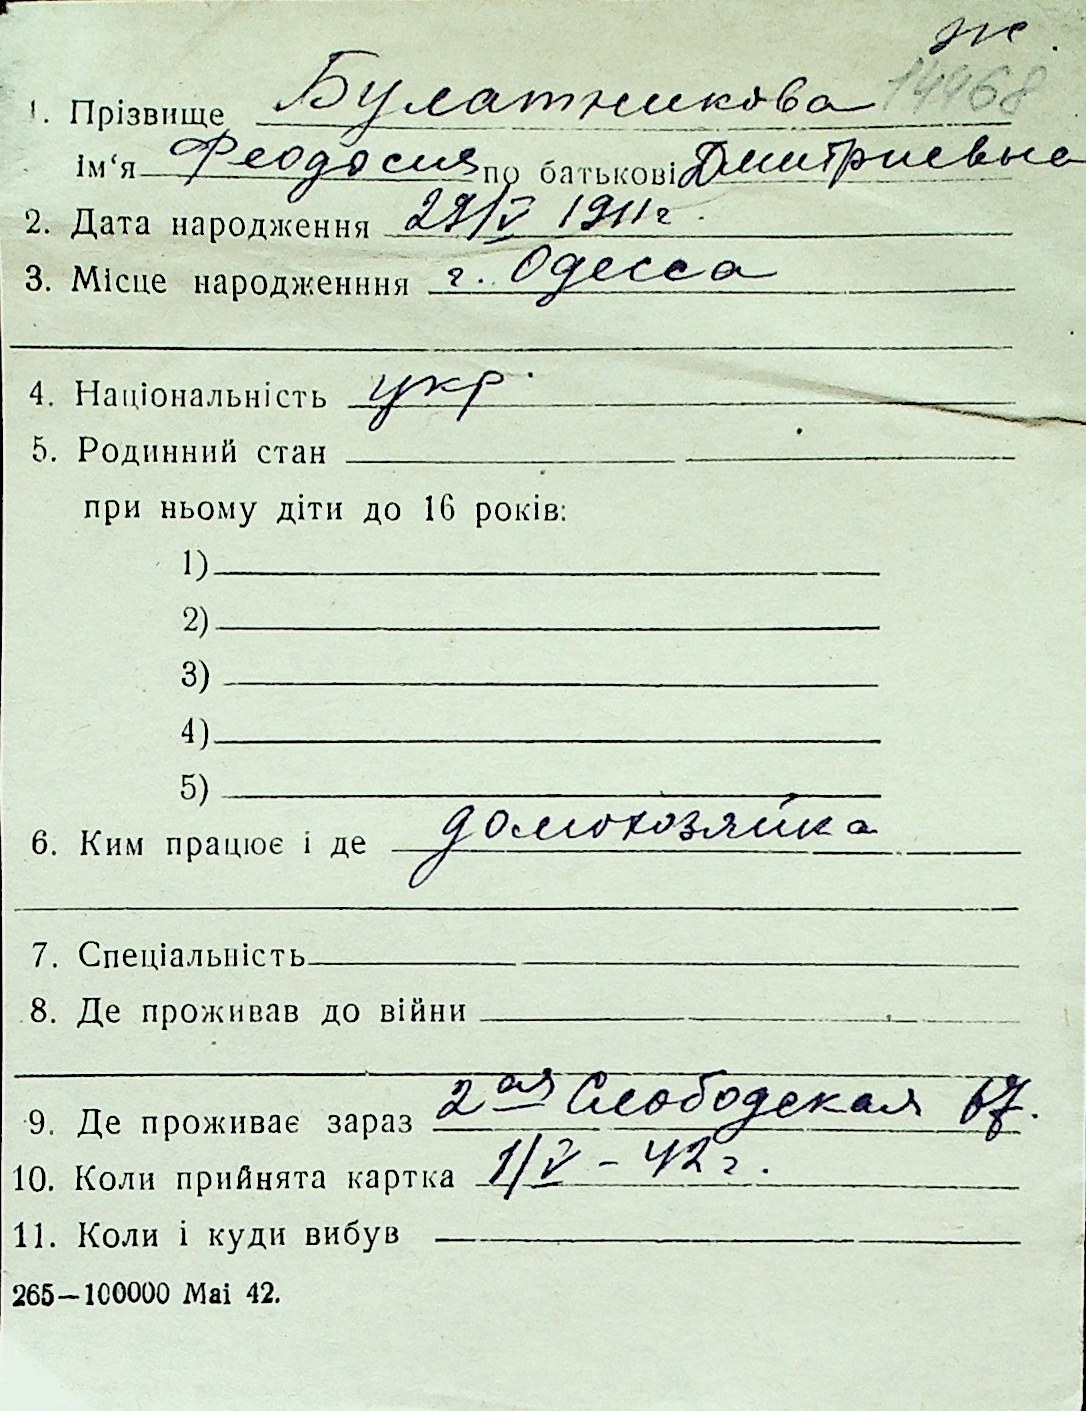 ж.
14468
1. Прізвище Булатникова
Ім‘я Феодосия по батькові Дмитриевна
2. Дата народження 29/V 1911 г.
3. Місце народженння г. Одесса
4. Національність укр.
5. Родинний стан
при ньому діти до 16 років:
1)
2)
3)
4)
5)
6. Ким працює і де домохозяйка
7. Спеціальність
8. Де проживав до війни
9. Де проживає зараз 2ая Слободская 67.
10. Коли прийнята картка 1/V – 42 г.
11. Коли і куди вибув
265—100000 Mai 42.